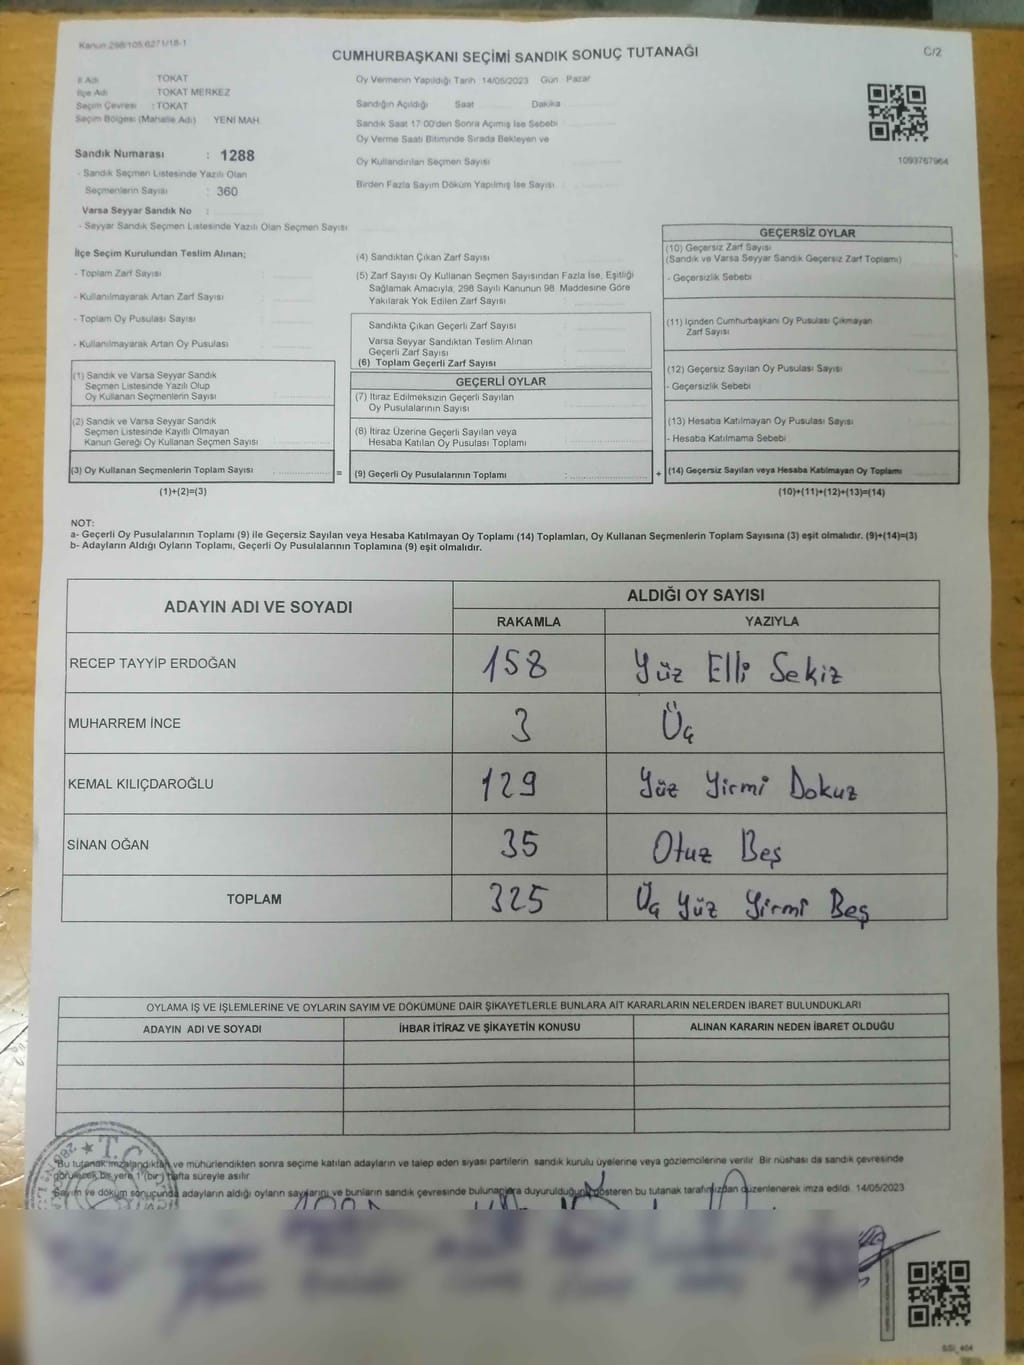 Kanun 298/105.6271/18-1
CUMHURBAŞKANI SEÇİMİ SANDIK SONUÇ TUTANAĞI
C/2
İl Adı TOKAT
İlçe Adı TOKAT MERKEZ
Seçim Çevresi : TOKAT
Seçim Bölgesi (Mahalle Adı) YENİ MAH.
Sandık Numarası : 1288
- Sandık Seçmen Listesinde Yazılı Olan
Seçmenlerin Sayısı : 360
Varsa Seyyar Sandık No :
- Seyyar Sandık Seçmen Listesinde Yazılı Olan Seçmen Sayısı
Oy Vermenin Yapıldığı Tarih 14/05/2023 Gün Pazar
Sandığın Açıldığı Saat Dakika
Sandık Saat 17:00'den Sonra Açımış İse Sebebi
Oy Verme Saati Bitiminde Sırada Bekleyen ve
Oy Kullandırılan Seçmen Sayısı
Birden Fazla Sayım Döküm Yapılmış İse Sayısı :
1093767964
İlçe Seçim Kurulundan Teslim Alınan;
- Toplam Zarf Sayısı
- Kullanılmayarak Artan Zarf Sayısı
- Toplam Oy Pusulası Sayısı
- Kullanılmayarak Artan Oy Pusulası
(1) Sandık ve Varsa Seyyar Sandık
Seçmen Listesinde Yazılı Olup
Oy Kullanan Seçmenlerin Sayısı
(2) Sandık ve Varsa Seyyar Sandık
Seçmen Listesinde Kayıtlı Olmayan
Kanun Gereği Oy Kullanan Seçmen Sayısı
(3) Oy Kullanan Seçmenlerin Toplam Sayısı :
(1)+(2)=(3)
=
(4) Sandıktan Çıkan Zarf Sayısı
(5) Zarf Sayısı Oy Kullanan Seçmen Sayısından Fazla İse, Eşitliği
Sağlamak Amacıyla, 298 Sayılı Kanunun 98. Maddesine Göre
Yakılarak Yok Edilen Zarf Sayısı
Sandıkta Çıkan Geçerli Zarf Sayısı
Varsa Seyyar Sandıktan Teslim Alınan
Geçerli Zarf Sayısı
(6) Toplam Geçerli Zarf Sayısı
GEÇERLİ OYLAR
(7) İtiraz Edilmeksizin Geçerli Sayılan
Oy Pusulalarının Sayısı
(8) İtiraz Üzerine Geçerli Sayılan veya
Hesaba Katılan Oy Pusulası Toplamı
(9) Geçerli Oy Pusulalarının Toplamı :
+
GEÇERSİZ OYLAR
(10) Geçersiz Zarf Sayısı
(Sandık ve Varsa Seyyar Sandık Geçersiz Zarf Toplamı)
- Geçersizlik Sebebi
(11) İçinden Cumhurbaşkanı Oy Pusulası Çıkmayan
Zarf Sayısı
(12) Geçersiz Sayılan Oy Pusulası Sayısı
- Geçersizlik Sebebi
(13) Hesaba Katılmayan Oy Pusulası Sayısı
- Hesaba Katılmama Sebebi
(14) Geçersiz Sayılan veya Hesaba Katılmayan Oy Toplamı
(10)+(11)+(12)+(13)=(14)
NOT:
a- Geçerli Oy Pusulalarının Toplamı (9) ile Geçersiz Sayılan veya Hesaba Katılmayan Oy Toplamı (14) Toplamları, Oy Kullanan Seçmenlerin Toplam Sayısına (3) eşit olmalıdır. (9)+(14)=(3)
b- Adayların Aldığı Oyların Toplamı, Geçerli Oy Pusulalarının Toplamına (9) eşit olmalıdır.
ADAYIN ADI VE SOYADI
ALDIĞI OY SAYISI
RAKAMLA YAZIYLA
RECEP TAYYİP ERDOĞAN 158 Yüz Elli Sekiz
MUHARREM İNCE 3 Üç
KEMAL KILIÇDAROĞLU 129 Yüz Yirmi Dokuz
SİNAN OĞAN 35 Otuz Beş
TOPLAM 325 Üç Yüz Yirmi Beş
OYLAMA İŞ VE İŞLEMLERİNE VE OYLARIN SAYIM VE DÖKÜMÜNE DAİR ŞİKAYETLERLE BUNLARA AİT KARARLARIN NELERDEN İBARET BULUNDUKLARI
ADAYIN ADI VE SOYADI İHBAR İTİRAZ VE ŞİKAYETİN KONUSU ALINAN KARARIN NEDEN İBARET OLDUĞU
Bu tutanak imzalandıktan ve mühürlendikten sonra seçime katılan adayların ve talep eden siyasi partilerin sandık kurulu üyelerine veya gözlemcilerine verilir. Bir nüshası da sandık çevresinde
görülecek bir yere 1 (bir) hafta süreyle asılır
Sayım ve döküm sonucunda adayların aldığı oyların sayılarını ve bunların sandık çevresinde bulunanlara duyurulduğunu gösteren bu tutanak tarafımızdan düzenlenerek imza edildi. 14/05/2023
★ T.C.